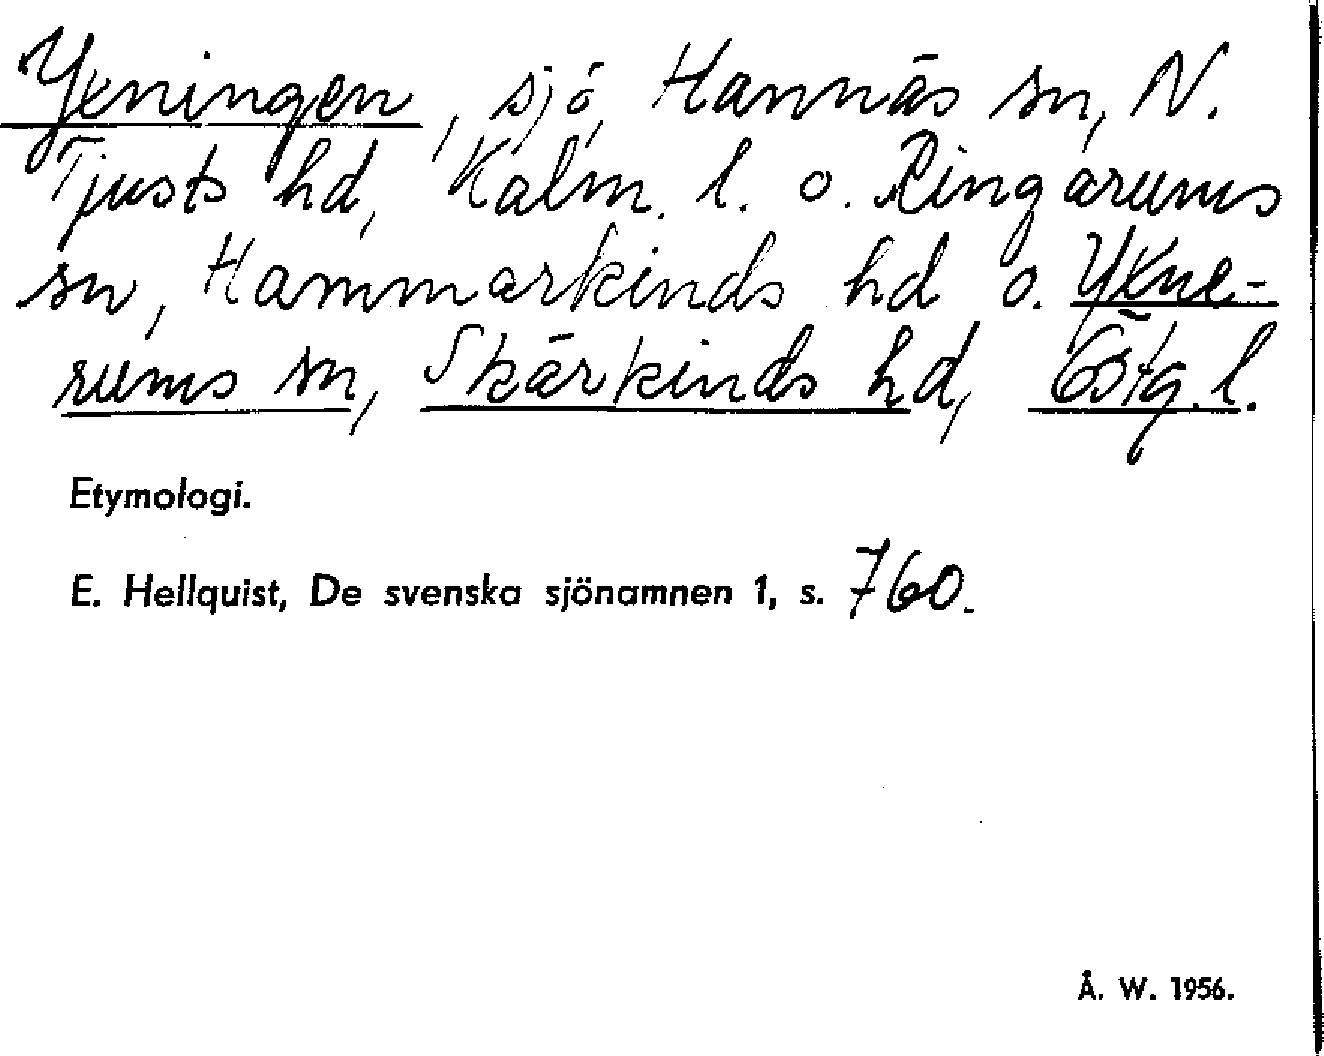 Ykningen, sjö, Hannäs sn, N.
Tjusts hd, Kalm. l. o. Ringarums
sn, Hammarkinds hd o. Ykne-
rums sn, Skärkinds hd, Östg. l.
Etymologi.
E. Hellquist, De svenska sjönamnen 1, s. 760.
Å. W. 1956.